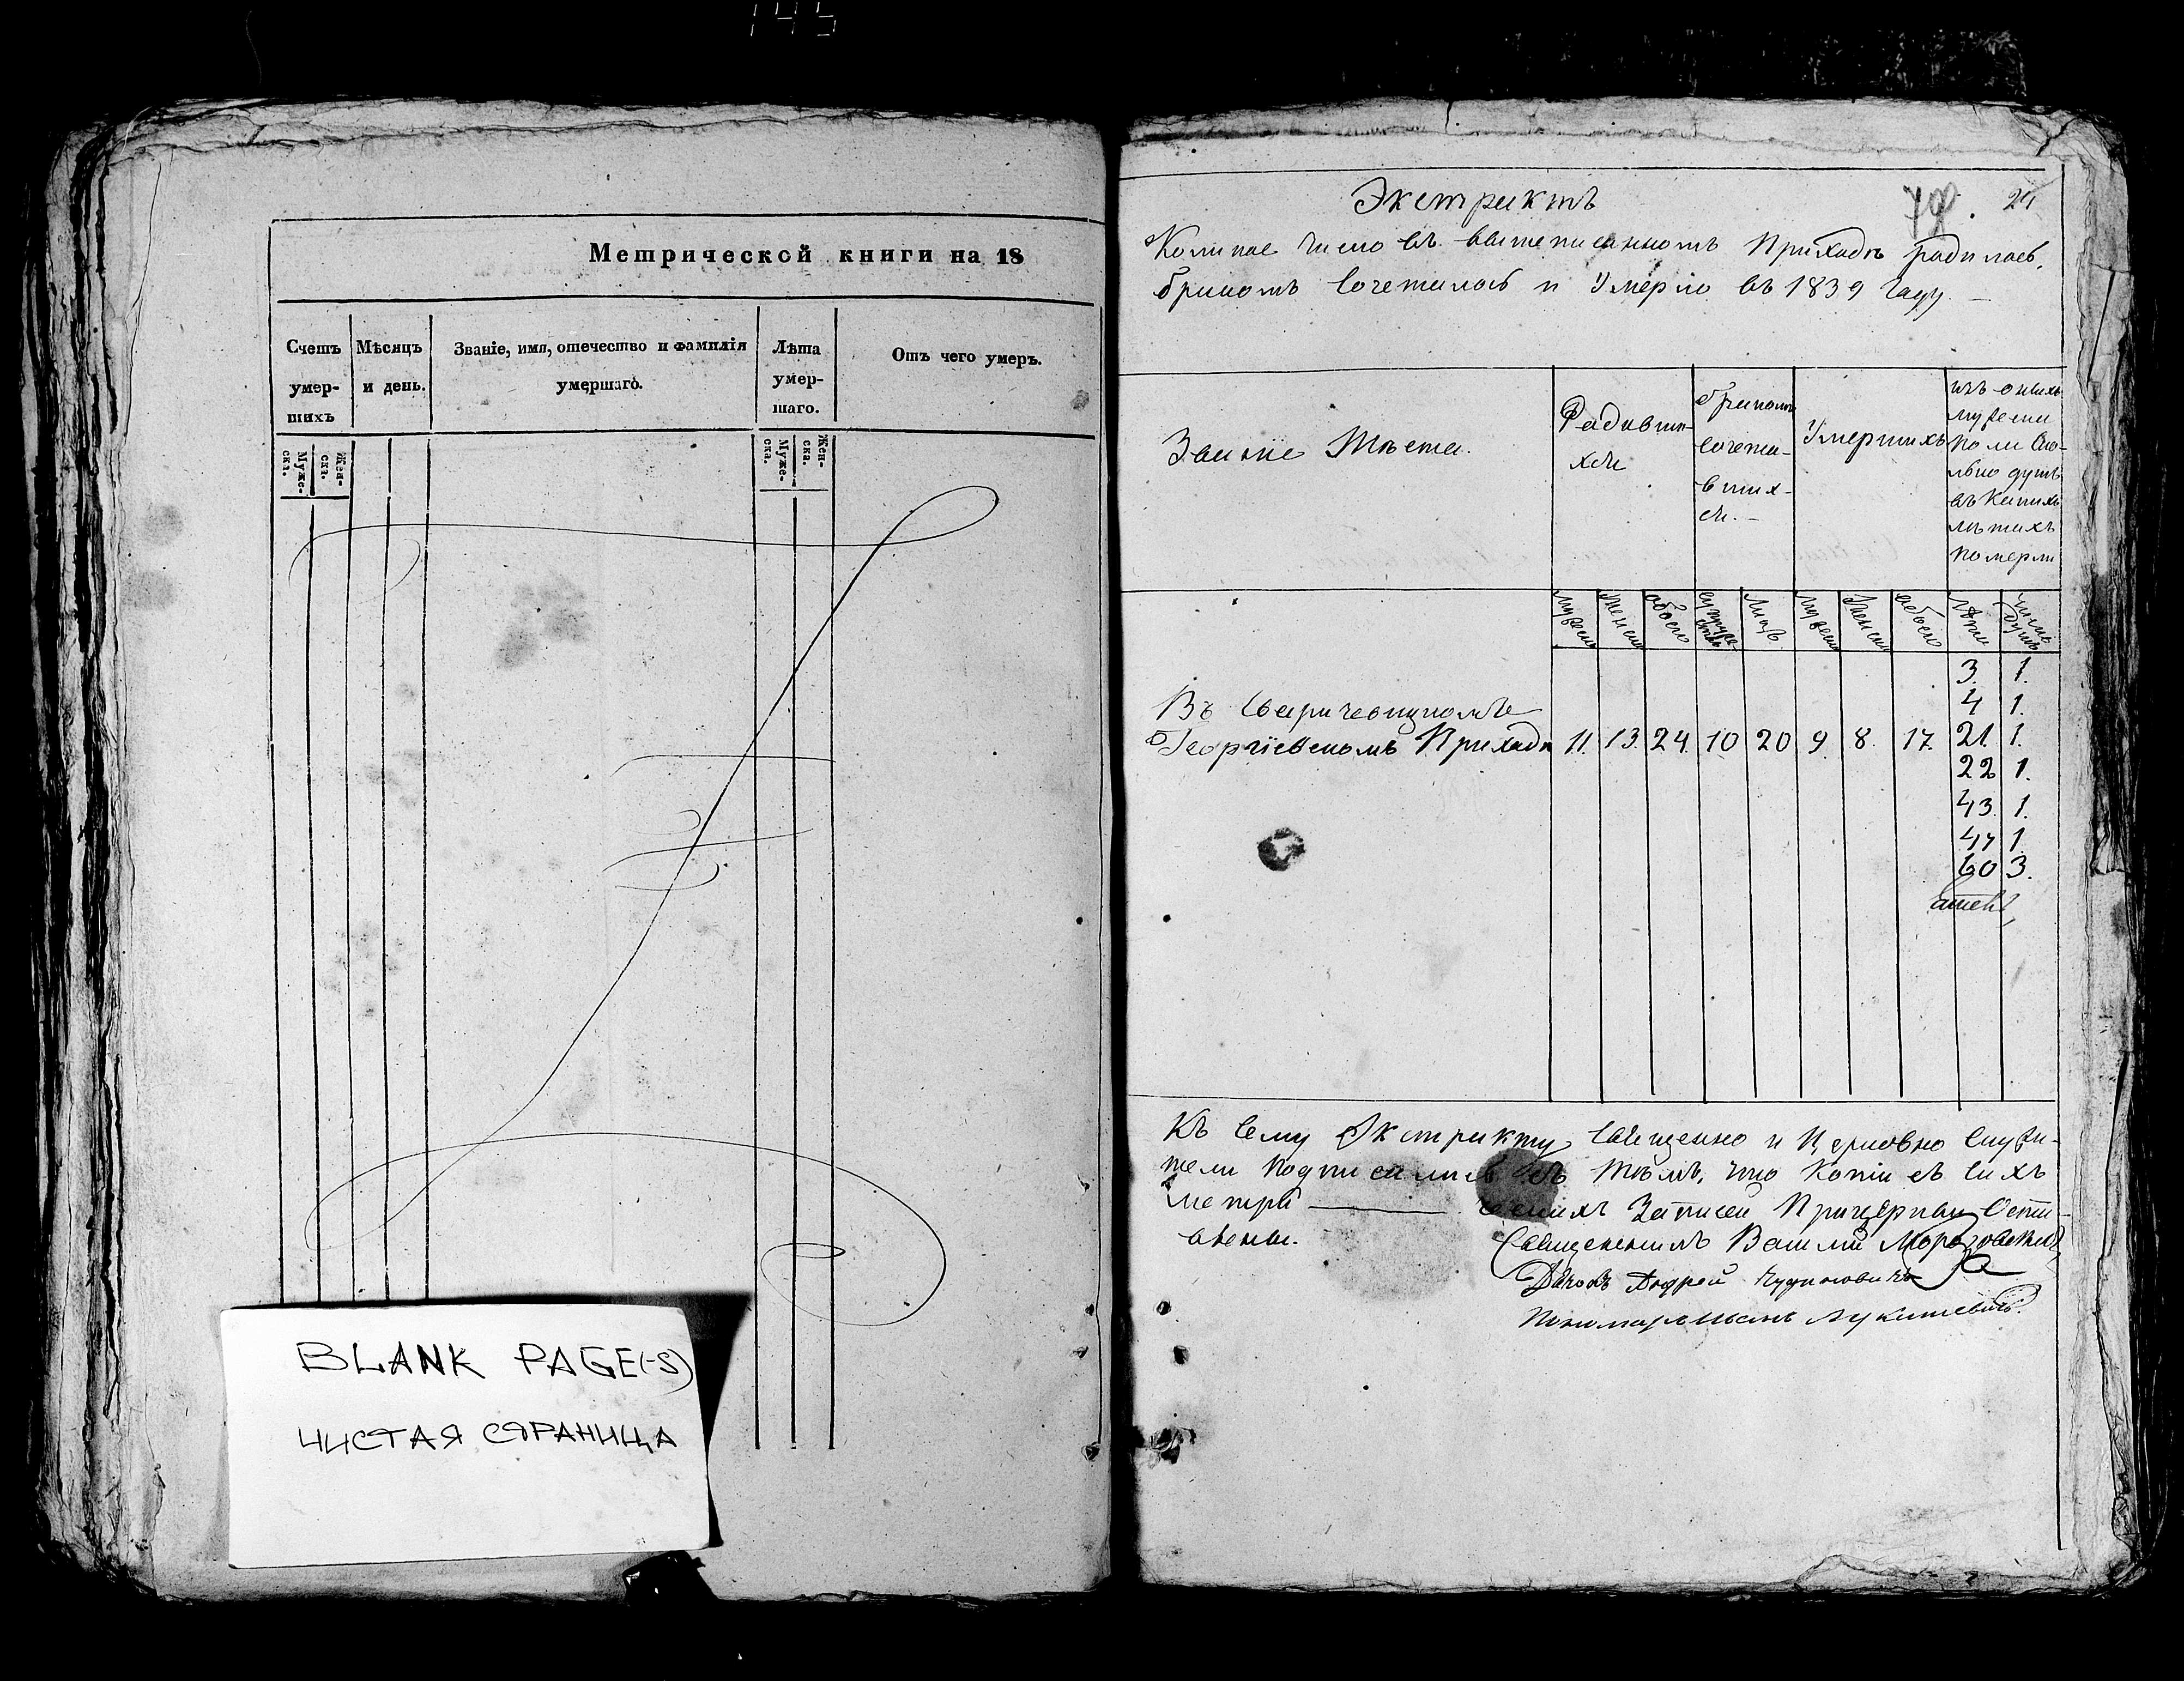 145
Метрической книги на 18
Счетъ умер- шихъ
Мѣсяцъ и день.
Званіе, имя, отечество и фамилія умершаго.
Лѣта умер- шаго.
Отъ чего умеръ.
Муже- ска.
Жен- ска.
Муже- ска.
Жен- ска.
BLANK PAGE(-S)
ЧИСТАЯ СТРАНИЦА
Экстрактъ
Коликое число въ вышеписанномъ Приходѣ родилось,
бракомъ сочеталось и Умерло въ 1839 Году. —
Званіе Мѣста.
Родивши-
хся
бракомъ
сочета-
вших-
ся. —
Умершихъ
изъ оныхъ
мужеска
пола ско-
лько душъ
въ какихъ
лѣтахъ
померли
мужеска
женска
обоего
супруже-
ствъ
лицъ
мужеска
женска
обоего
Лѣта
число
душъ
3. 1.
4 1.
Георгіевскомъ Приходѣ 11. 13. 24. 10 20 9. 8. 17. 21. 1.
22 1.
43. 1.
47 1.
60 3.
Къ сему Экстракту священно и Церковно служи-
тели подписались въ томъ, что копіи съ сихъ
метри ——— ческихъ Записей При церкви Оста-
влены.
Священникъ Василій
Дьячокъ Андрей
Пономарь Иванъ